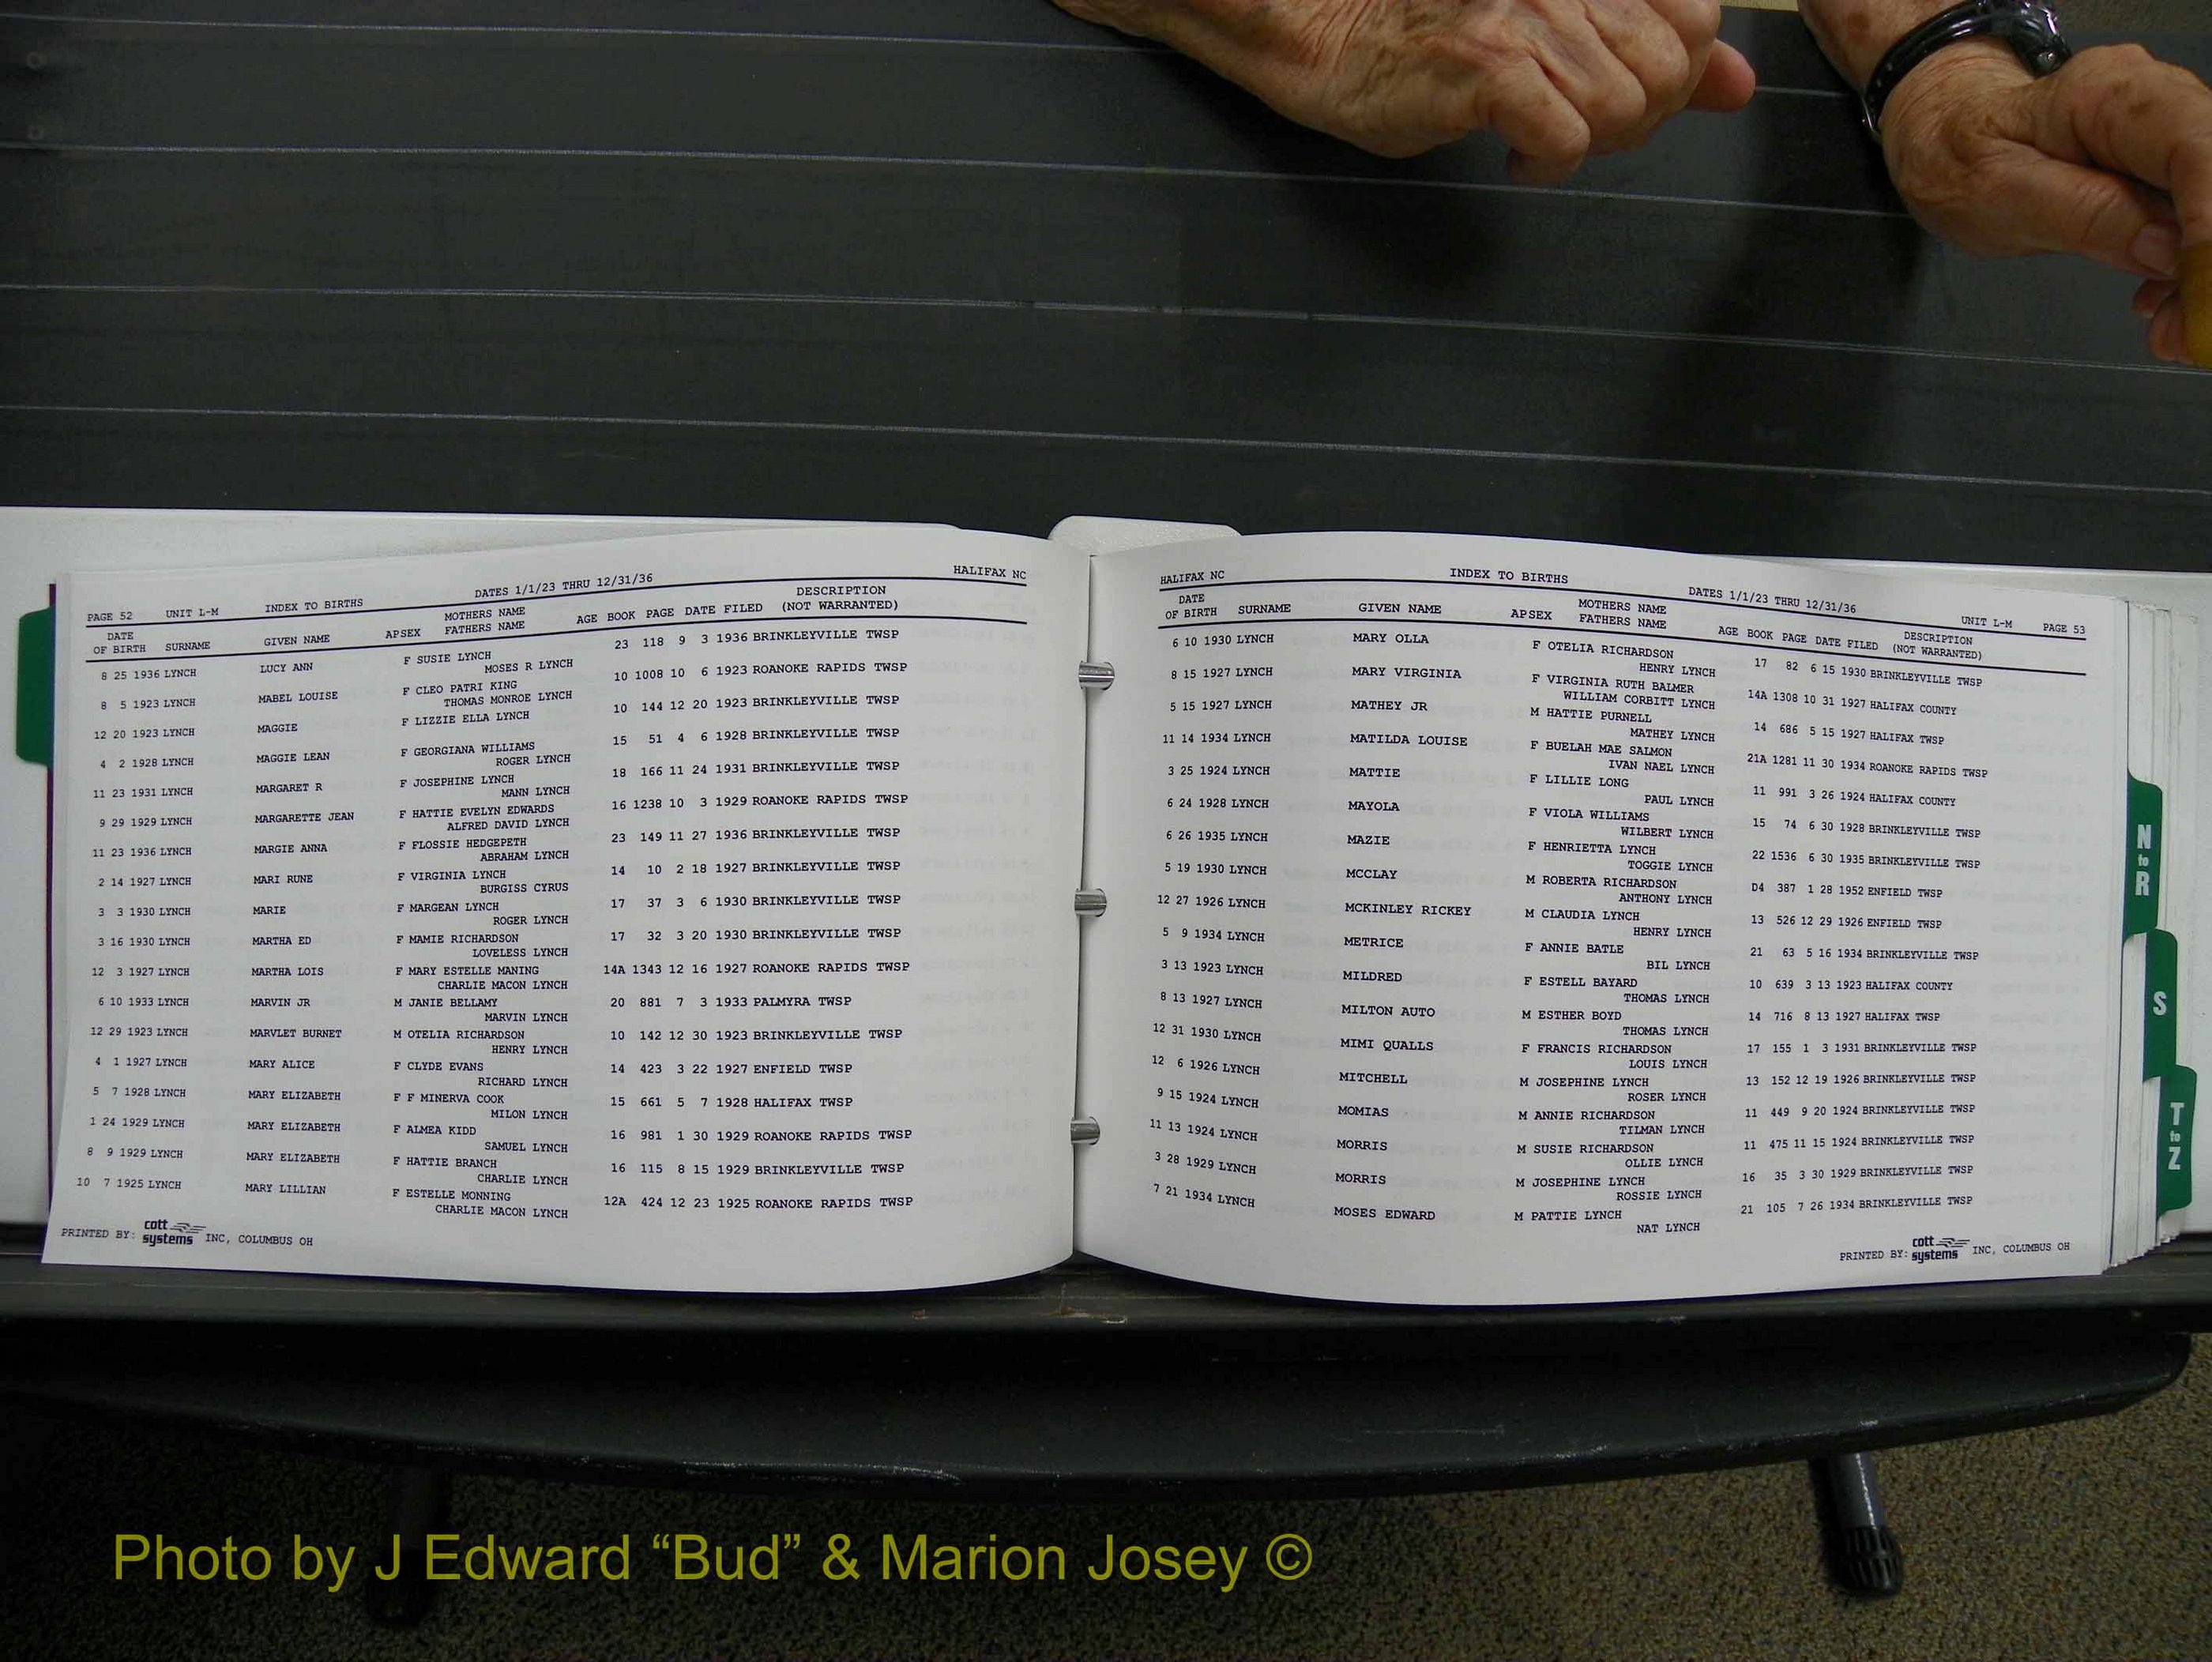 PAGE 52 UNIT L-M INDEX TO BIRTHS DATES 1/1/23 THRU 12/31/36 HALIFAX NC
DATE OF BIRTH SURNAME GIVEN NAME APSEX MOTHERS NAME FATHERS NAME AGE BOOK PAGE DATE FILED DESCRIPTION (NOT WARRANTED)
8 25 1936 LYNCH LUCY ANN F SUSIE LYNCH 23 118 9 3 1936 BRINKLEYVILLE TWSP
MOSES R LYNCH
8 5 1923 LYNCH MABEL LOUISE F CLEO PATRI KING 10 1008 10 6 1923 ROANOKE RAPIDS TWSP
THOMAS MONROE LYNCH
12 20 1923 LYNCH MAGGIE F LIZZIE ELLA LYNCH 10 144 12 20 1923 BRINKLEYVILLE TWSP
4 2 1928 LYNCH MAGGIE LEAN F GEORGIANA WILLIAMS 15 51 4 6 1928 BRINKLEYVILLE TWSP
ROGER LYNCH
11 23 1931 LYNCH MARGARET R F JOSEPHINE LYNCH 18 166 11 24 1931 BRINKLEYVILLE TWSP
MANN LYNCH
9 29 1929 LYNCH MARGARETTE JEAN F HATTIE EVELYN EDWARDS 16 1238 10 3 1929 ROANOKE RAPIDS TWSP
ALFRED DAVID LYNCH
11 23 1936 LYNCH MARGIE ANNA F FLOSSIE HEDGEPETH 23 149 11 27 1936 BRINKLEYVILLE TWSP
ABRAHAM LYNCH
2 14 1927 LYNCH MARI RUNE F VIRGINIA LYNCH 14 10 2 18 1927 BRINKLEYVILLE TWSP
BURGISS CYRUS
3 3 1930 LYNCH MARIE F MARGEAN LYNCH 17 37 3 6 1930 BRINKLEYVILLE TWSP
ROGER LYNCH
3 16 1930 LYNCH MARTHA ED F MAMIE RICHARDSON 17 32 3 20 1930 BRINKLEYVILLE TWSP
LOVELESS LYNCH
12 3 1927 LYNCH MARTHA LOIS F MARY ESTELLE MANING 14A 1343 12 16 1927 ROANOKE RAPIDS TWSP
CHARLIE MACON LYNCH
6 10 1933 LYNCH MARVIN JR M JANIE BELLAMY 20 881 7 3 1933 PALMYRA TWSP
MARVIN LYNCH
12 29 1923 LYNCH MARVLET BURNET M OTELIA RICHARDSON 10 142 12 30 1923 BRINKLEYVILLE TWSP
HENRY LYNCH
4 1 1927 LYNCH MARY ALICE F CLYDE EVANS 14 423 3 22 1927 ENFIELD TWSP
RICHARD LYNCH
5 7 1928 LYNCH MARY ELIZABETH F F MINERVA COOK 15 661 5 7 1928 HALIFAX TWSP
MILON LYNCH
1 24 1929 LYNCH MARY ELIZABETH F ALMEA KIDD 16 981 1 30 1929 ROANOKE RAPIDS TWSP
SAMUEL LYNCH
8 9 1929 LYNCH MARY ELIZABETH F HATTIE BRANCH 16 115 8 15 1929 BRINKLEYVILLE TWSP
CHARLIE LYNCH
10 7 1925 LYNCH MARY LILLIAN F ESTELLE MONNING 12A 424 12 23 1925 ROANOKE RAPIDS TWSP
CHARLIE MACON LYNCH
PRINTED BY: cott systems INC, COLUMBUS OH
HALIFAX NC INDEX TO BIRTHS DATES 1/1/23 THRU 12/31/36 UNIT L-M PAGE 53
DATE OF BIRTH SURNAME GIVEN NAME APSEX MOTHERS NAME FATHERS NAME AGE BOOK PAGE DATE FILED DESCRIPTION (NOT WARRANTED)
6 10 1930 LYNCH MARY OLLA F OTELIA RICHARDSON 17 82 6 15 1930 BRINKLEYVILLE TWSP
HENRY LYNCH
8 15 1927 LYNCH MARY VIRGINIA F VIRGINIA RUTH BALMER 14A 1308 10 31 1927 HALIFAX COUNTY
WILLIAM CORBITT LYNCH
5 15 1927 LYNCH MATHEY JR M HATTIE PURNELL 14 686 5 15 1927 HALIFAX TWSP
MATHEY LYNCH
11 14 1934 LYNCH MATILDA LOUISE F BUELAH MAE SALMON 21A 1281 11 30 1934 ROANOKE RAPIDS TWSP
IVAN NAEL LYNCH
3 25 1924 LYNCH MATTIE F LILLIE LONG 11 991 3 26 1924 HALIFAX COUNTY
PAUL LYNCH
6 24 1928 LYNCH MAYOLA F VIOLA WILLIAMS 15 74 6 30 1928 BRINKLEYVILLE TWSP
WILBERT LYNCH
6 26 1935 LYNCH MAZIE F HENRIETTA LYNCH 22 1536 6 30 1935 BRINKLEYVILLE TWSP
TOGGIE LYNCH
5 19 1930 LYNCH MCCLAY M ROBERTA RICHARDSON D4 387 1 28 1952 ENFIELD TWSP
ANTHONY LYNCH
12 27 1926 LYNCH MCKINLEY RICKEY M CLAUDIA LYNCH 13 526 12 29 1926 ENFIELD TWSP
HENRY LYNCH
5 9 1934 LYNCH METRICE F ANNIE BATLE 21 63 5 16 1934 BRINKLEYVILLE TWSP
BIL LYNCH
3 13 1923 LYNCH MILDRED F ESTELL BAYARD 10 639 3 13 1923 HALIFAX COUNTY
THOMAS LYNCH
8 13 1927 LYNCH MILTON AUTO M ESTHER BOYD 14 716 8 13 1927 HALIFAX TWSP
THOMAS LYNCH
12 31 1930 LYNCH MIMI QUALLS F FRANCIS RICHARDSON 17 155 1 3 1931 BRINKLEYVILLE TWSP
LOUIS LYNCH
12 6 1926 LYNCH MITCHELL M JOSEPHINE LYNCH 13 152 12 19 1926 BRINKLEYVILLE TWSP
ROSER LYNCH
9 15 1924 LYNCH MOMIAS M ANNIE RICHARDSON 11 449 9 20 1924 BRINKLEYVILLE TWSP
TILMAN LYNCH
11 13 1924 LYNCH MORRIS M SUSIE RICHARDSON 11 475 11 15 1924 BRINKLEYVILLE TWSP
OLLIE LYNCH
3 28 1929 LYNCH MORRIS M JOSEPHINE LYNCH 16 35 3 30 1929 BRINKLEYVILLE TWSP
ROSSIE LYNCH
7 21 1934 LYNCH MOSES EDWARD M PATTIE LYNCH 21 105 7 26 1934 BRINKLEYVILLE TWSP
NAT LYNCH
PRINTED BY: cott systems INC, COLUMBUS OH
N to R
S
T to Z
Photo by J Edward “Bud” & Marion Josey ©